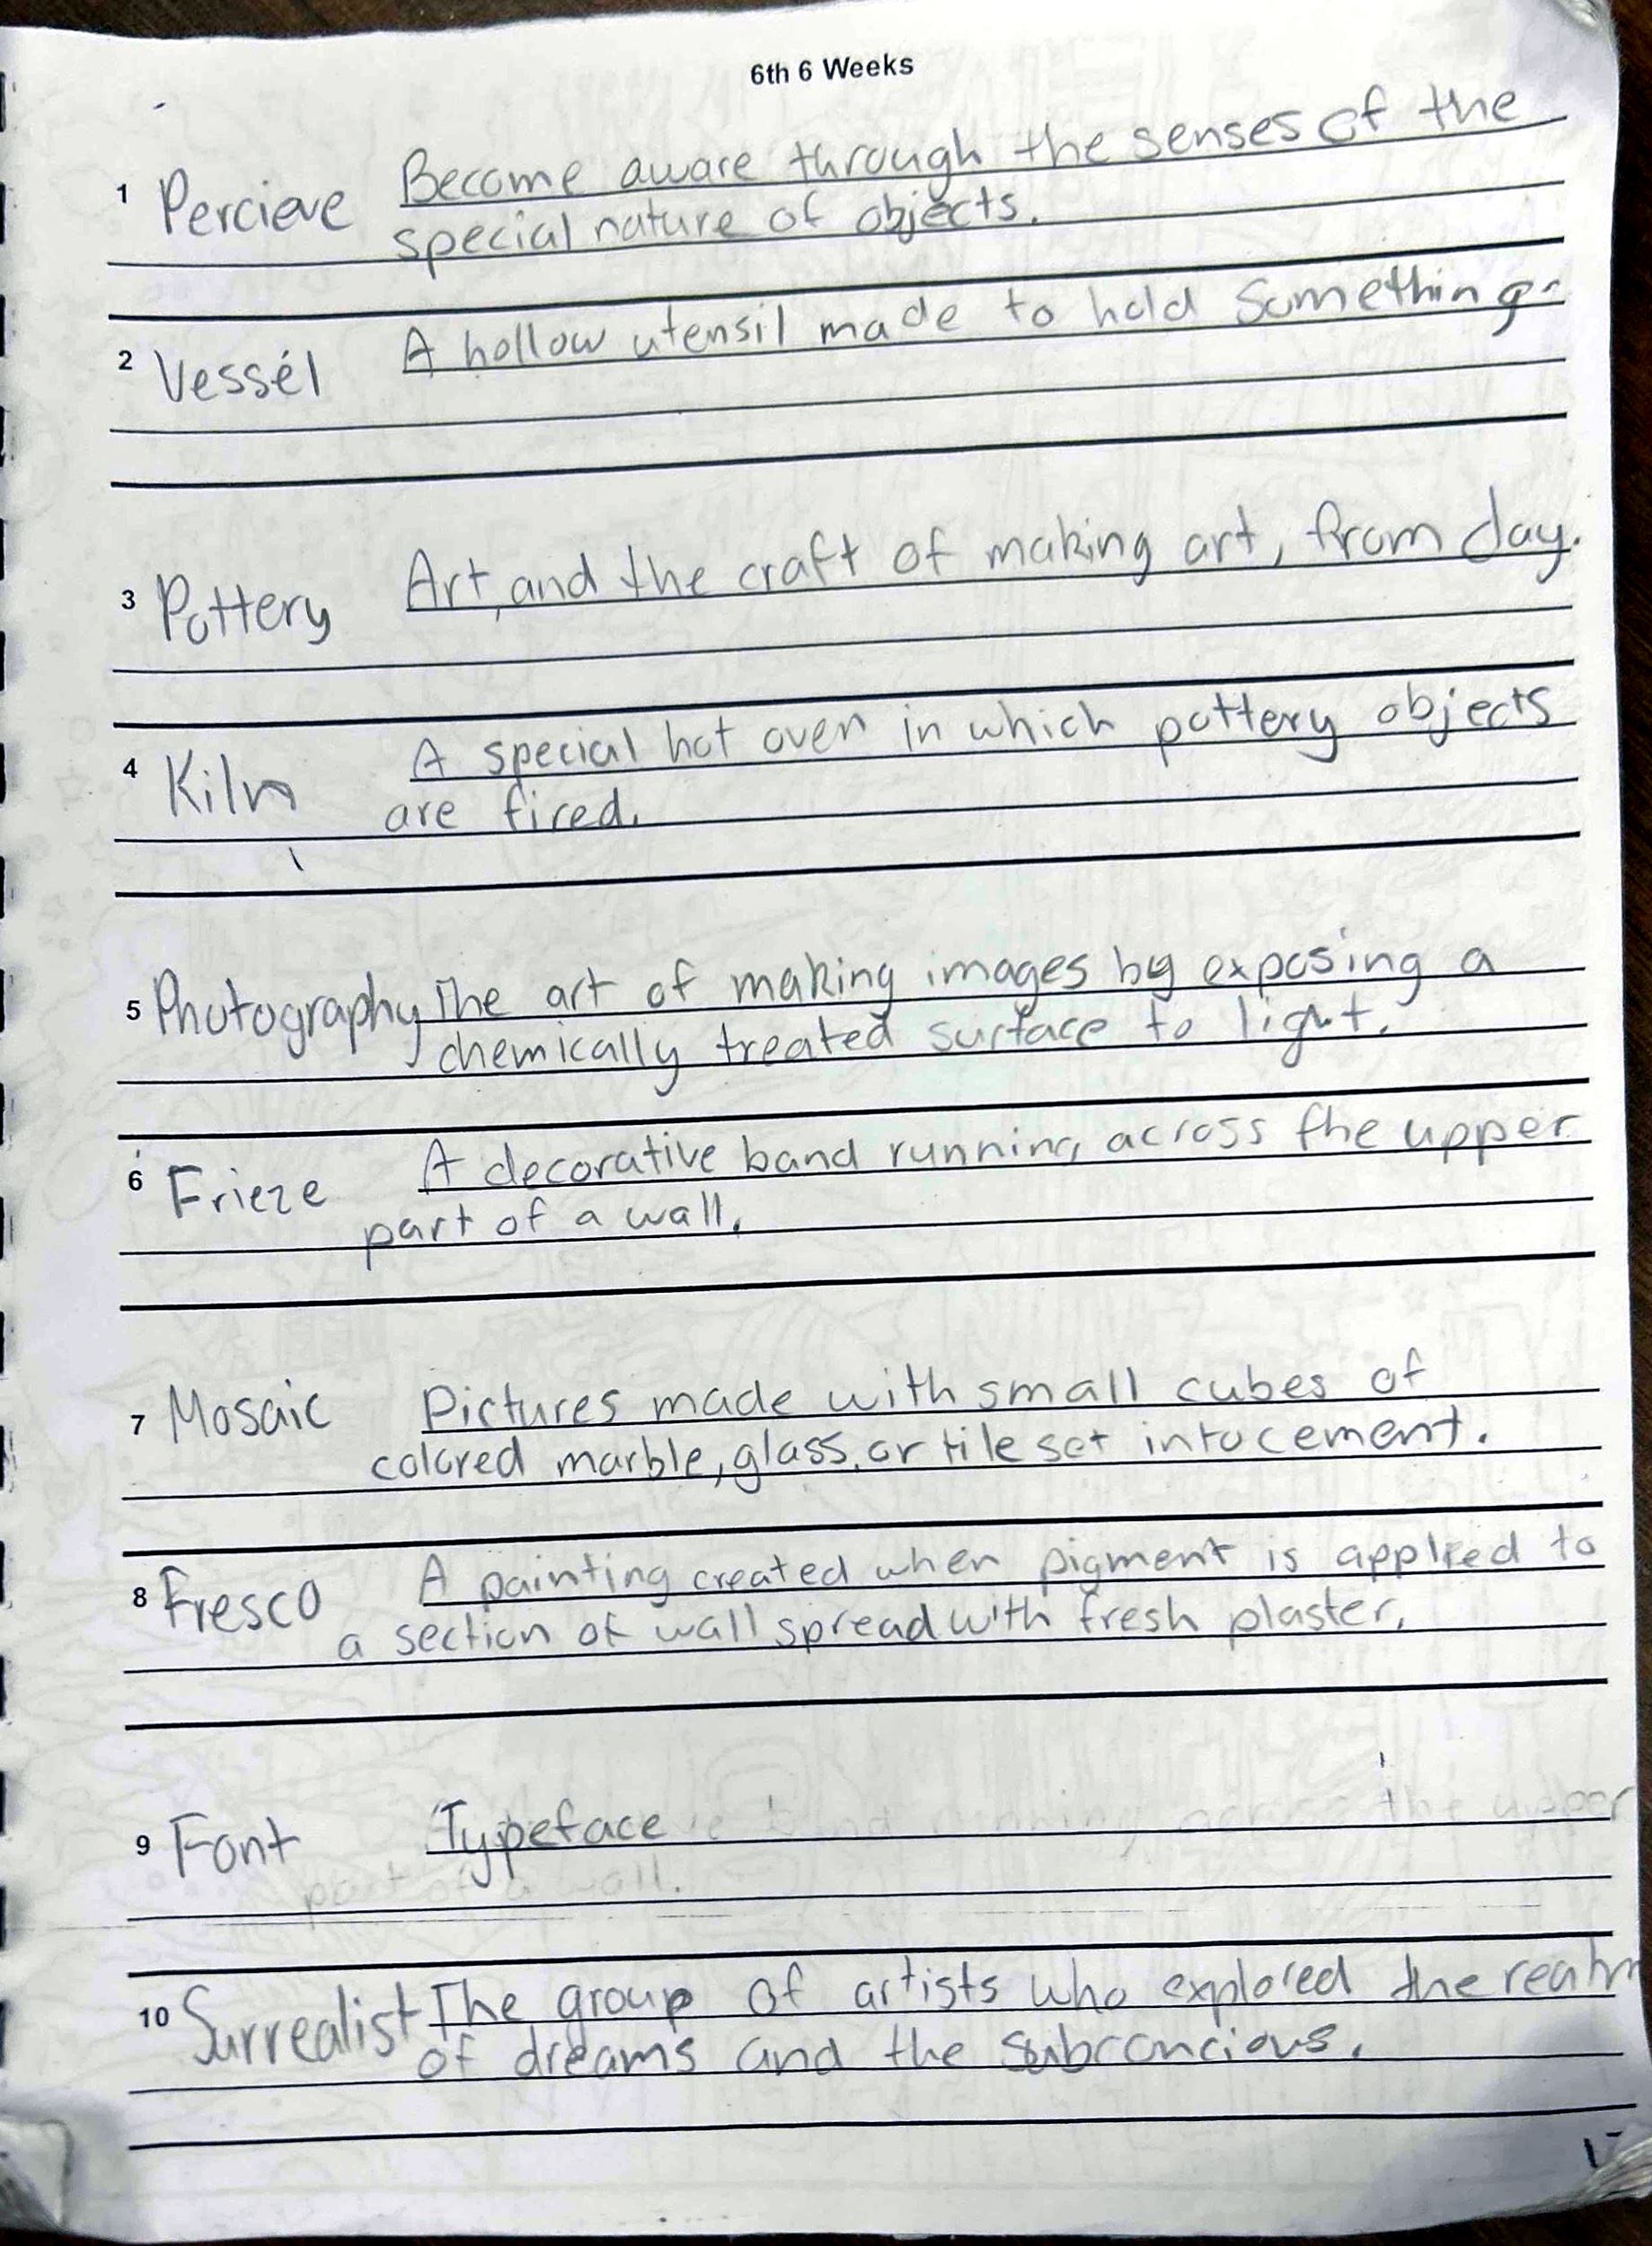 6th 6 Weeks
1 Percieve Become aware through the senses of the
special nature of objects.
2 Vessel A hollow utensil made to hold something.
3 Pottery Art, and the craft of making art, from clay.
4 Kiln A special hot oven in which pottery objects
are fired.
5 Photography The art of making images by exposing a
chemically treated surface to light.
6 Frieze A decorative band running across the upper
part of a wall.
7 Mosaic Pictures made with small cubes of
colored marble, glass, or tile set into cement.
8 Fresco A painting created when pigment is applied to
a section of wall spread with fresh plaster.
9 Font Typeface band running across the upper
part of a wall.
10 Surrealist The group of artists who explored the realm
of dreams and the subconcious.